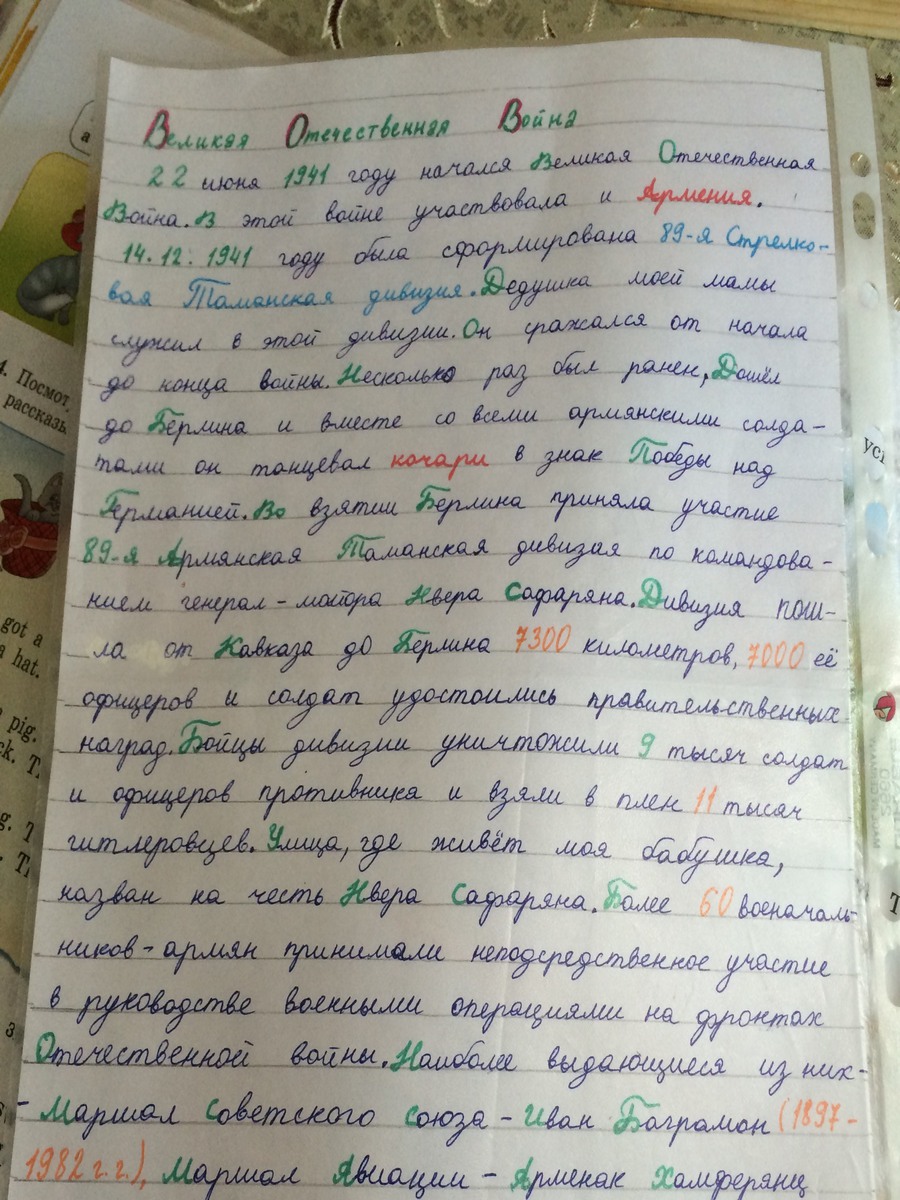 Великая Отечественная Война
22 июня 1941 году начался Великая Отечественная
Война. В этой войне участвовала и Армения.
14.12.1941 году была сформирована 89-я Стрелко-
вая Таманская дивизия. Дедушка моей мамы
служил в этой дивизии. Он сражался от начала
до конца войны. Несколько раз был ранен, Дошёл
до Берлина и вместе со всеми армянскими солда-
тами он танцевал кочари в знак Победы над
Германией. Во взятии Берлина приняла участие
89-я Армянская Таманская дивизая по командова-
нием генерал-майора Нвера Сафаряна. Дивизия пош-
ла от Кавказа до Берлина 7300 километров, 7000 её
офицеров и солдат удостоились правительственных
наград. Бойцы дивизии уничтожили 9 тысяч солдат
и офицеров противника и взяли в плен 11 тысяч
гитлеровцев. Улица, где живёт моя бабушка,
назван на честь Нвера Сафаряна. Более 60 военачаль-
ников-армян принимали неподсредственное участие
в руководстве военными операциями на фронтах
Отечественной войны. Наиболее выдающиеся из них-
- Маршал Советского Союза - Иван Баграмон (1897-
1982 г.г.), Маршал Авиации - Арменак Хамферянц
4. Посмот
рассказ
got a
a hat.
pig.
ck. T
g. T
З
а
уст
Т